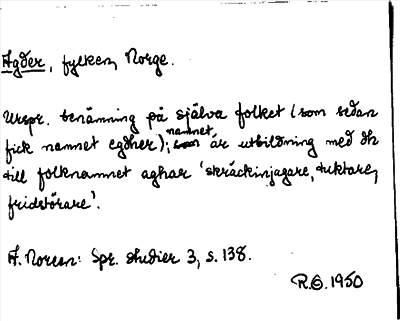 Agder, fylken, Norge.
Urspr. benämning på själva folket (som sedan
fick namnet egðner); namnet är utbildning med ðh
till folknamnet aghar 'skräckinjagare, tuktare,
fridstörare'.
A. Noreen: Spr. studier 3, s. 138.
R.O. 1950